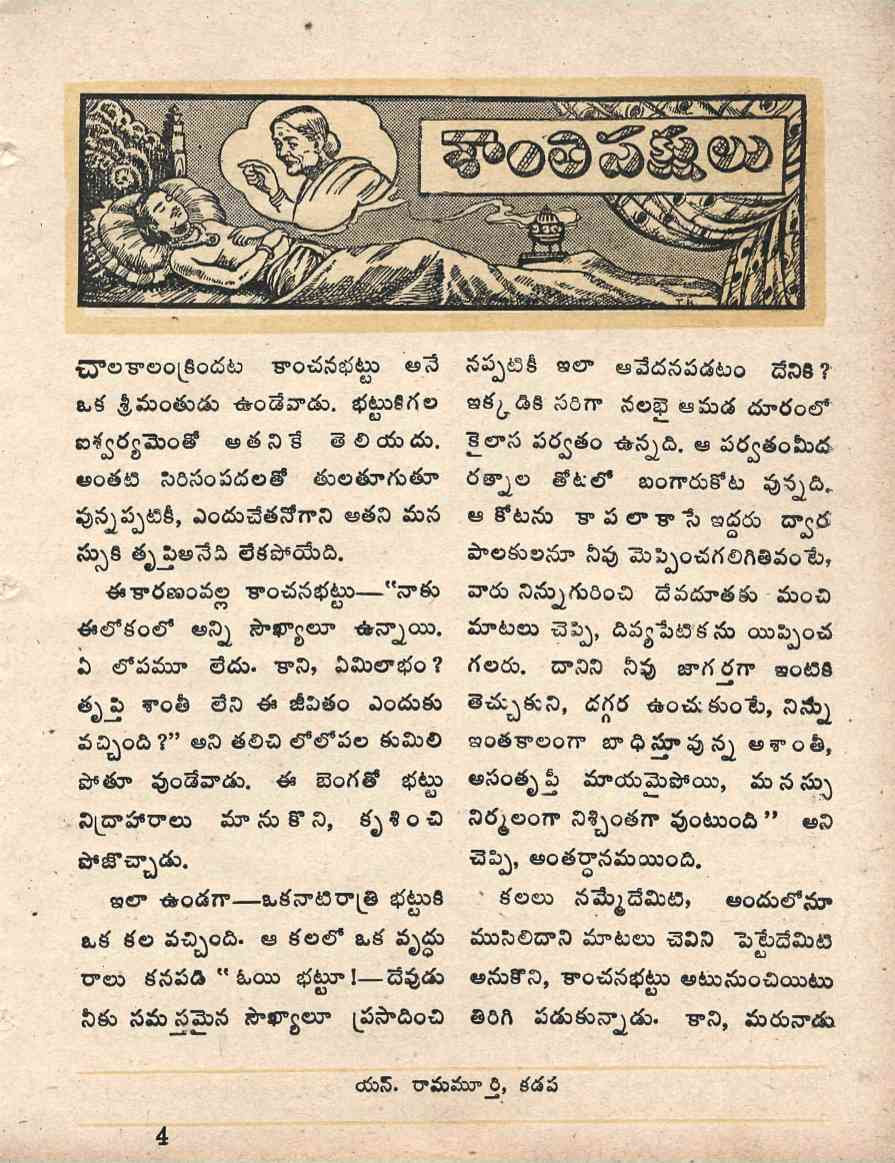 శాంతిపక్షులు
చాలకాలంక్రిందట కాంచనభట్టు అనే
ఒక శ్రీమంతుడు ఉండేవాడు. భట్టుకిగల
ఐశ్వర్యమెంతో అతనికే తెలియదు.
అంతటి సిరిసంపదలతో తులతూగుతూ
వున్నప్పటికీ, ఎందుచేతనోగాని అతని మన
స్సుకి తృప్తిఅనేది లేకపోయేది.
ఈకారణంవల్ల కాంచనభట్టు—“నాకు
ఈలోకంలో అన్ని సౌఖ్యాలూ ఉన్నాయి.
ఏ లోపమూ లేదు. కాని, ఏమిలాభం?
తృప్తి శాంతీ లేని ఈ జీవితం ఎందుకు
వచ్చింది?” అని తలిచి లోలోపల కుమిలి
పోతూ వుండేవాడు. ఈ బెంగతో భట్టు
నిద్రాహారాలు మానుకొని, కృశించి
పోజొచ్చాడు.
ఇలా ఉండగా—ఒకనాటిరాత్రి భట్టుకి
ఒక కల వచ్చింది. ఆ కలలో ఒక వృద్ధు
రాలు కనపడి “ఓయి భట్టూ!—దేవుడు
నీకు సమస్తమైన సౌఖ్యాలూ ప్రసాదించి
నప్పటికీ ఇలా ఆవేదనపడటం దేనికి?
ఇక్కడికి సరిగా నలభై ఆమడ దూరంలో
కైలాస పర్వతం ఉన్నది. ఆ పర్వతంమీద
రత్నాల తోటలో బంగారుకోట వున్నది.
ఆ కోటను కాపలాకాసే ఇద్దరు ద్వార
పాలకులనూ నీవు మెప్పించగలిగితివంటే,
వారు నిన్నుగురించి దేవదూతకు మంచి
మాటలు చెప్పి, దివ్యపేటికను యిప్పించ
గలరు. దానిని నీవు జాగర్తగా ఇంటికి
తెచ్చుకుని, దగ్గర ఉంచుకుంటే, నిన్ను
ఇంతకాలంగా బాధిస్తూవున్న అశాంతీ,
అసంతృప్తీ మాయమైపోయి, మనస్సు
నిర్మలంగా నిశ్చింతగా వుంటుంది” అని
చెప్పి, అంతర్ధానమయింది.
కలలు నమ్మేదేమిటి, అందులోనూ
ముసిలిదాని మాటలు చెవిని పెట్టేదేమిటి
అనుకొని, కాంచనభట్టు అటునుంచియిటు
తిరిగి పడుకున్నాడు. కాని, మరునాడు
యన్. రామమూర్తి, కడప
4